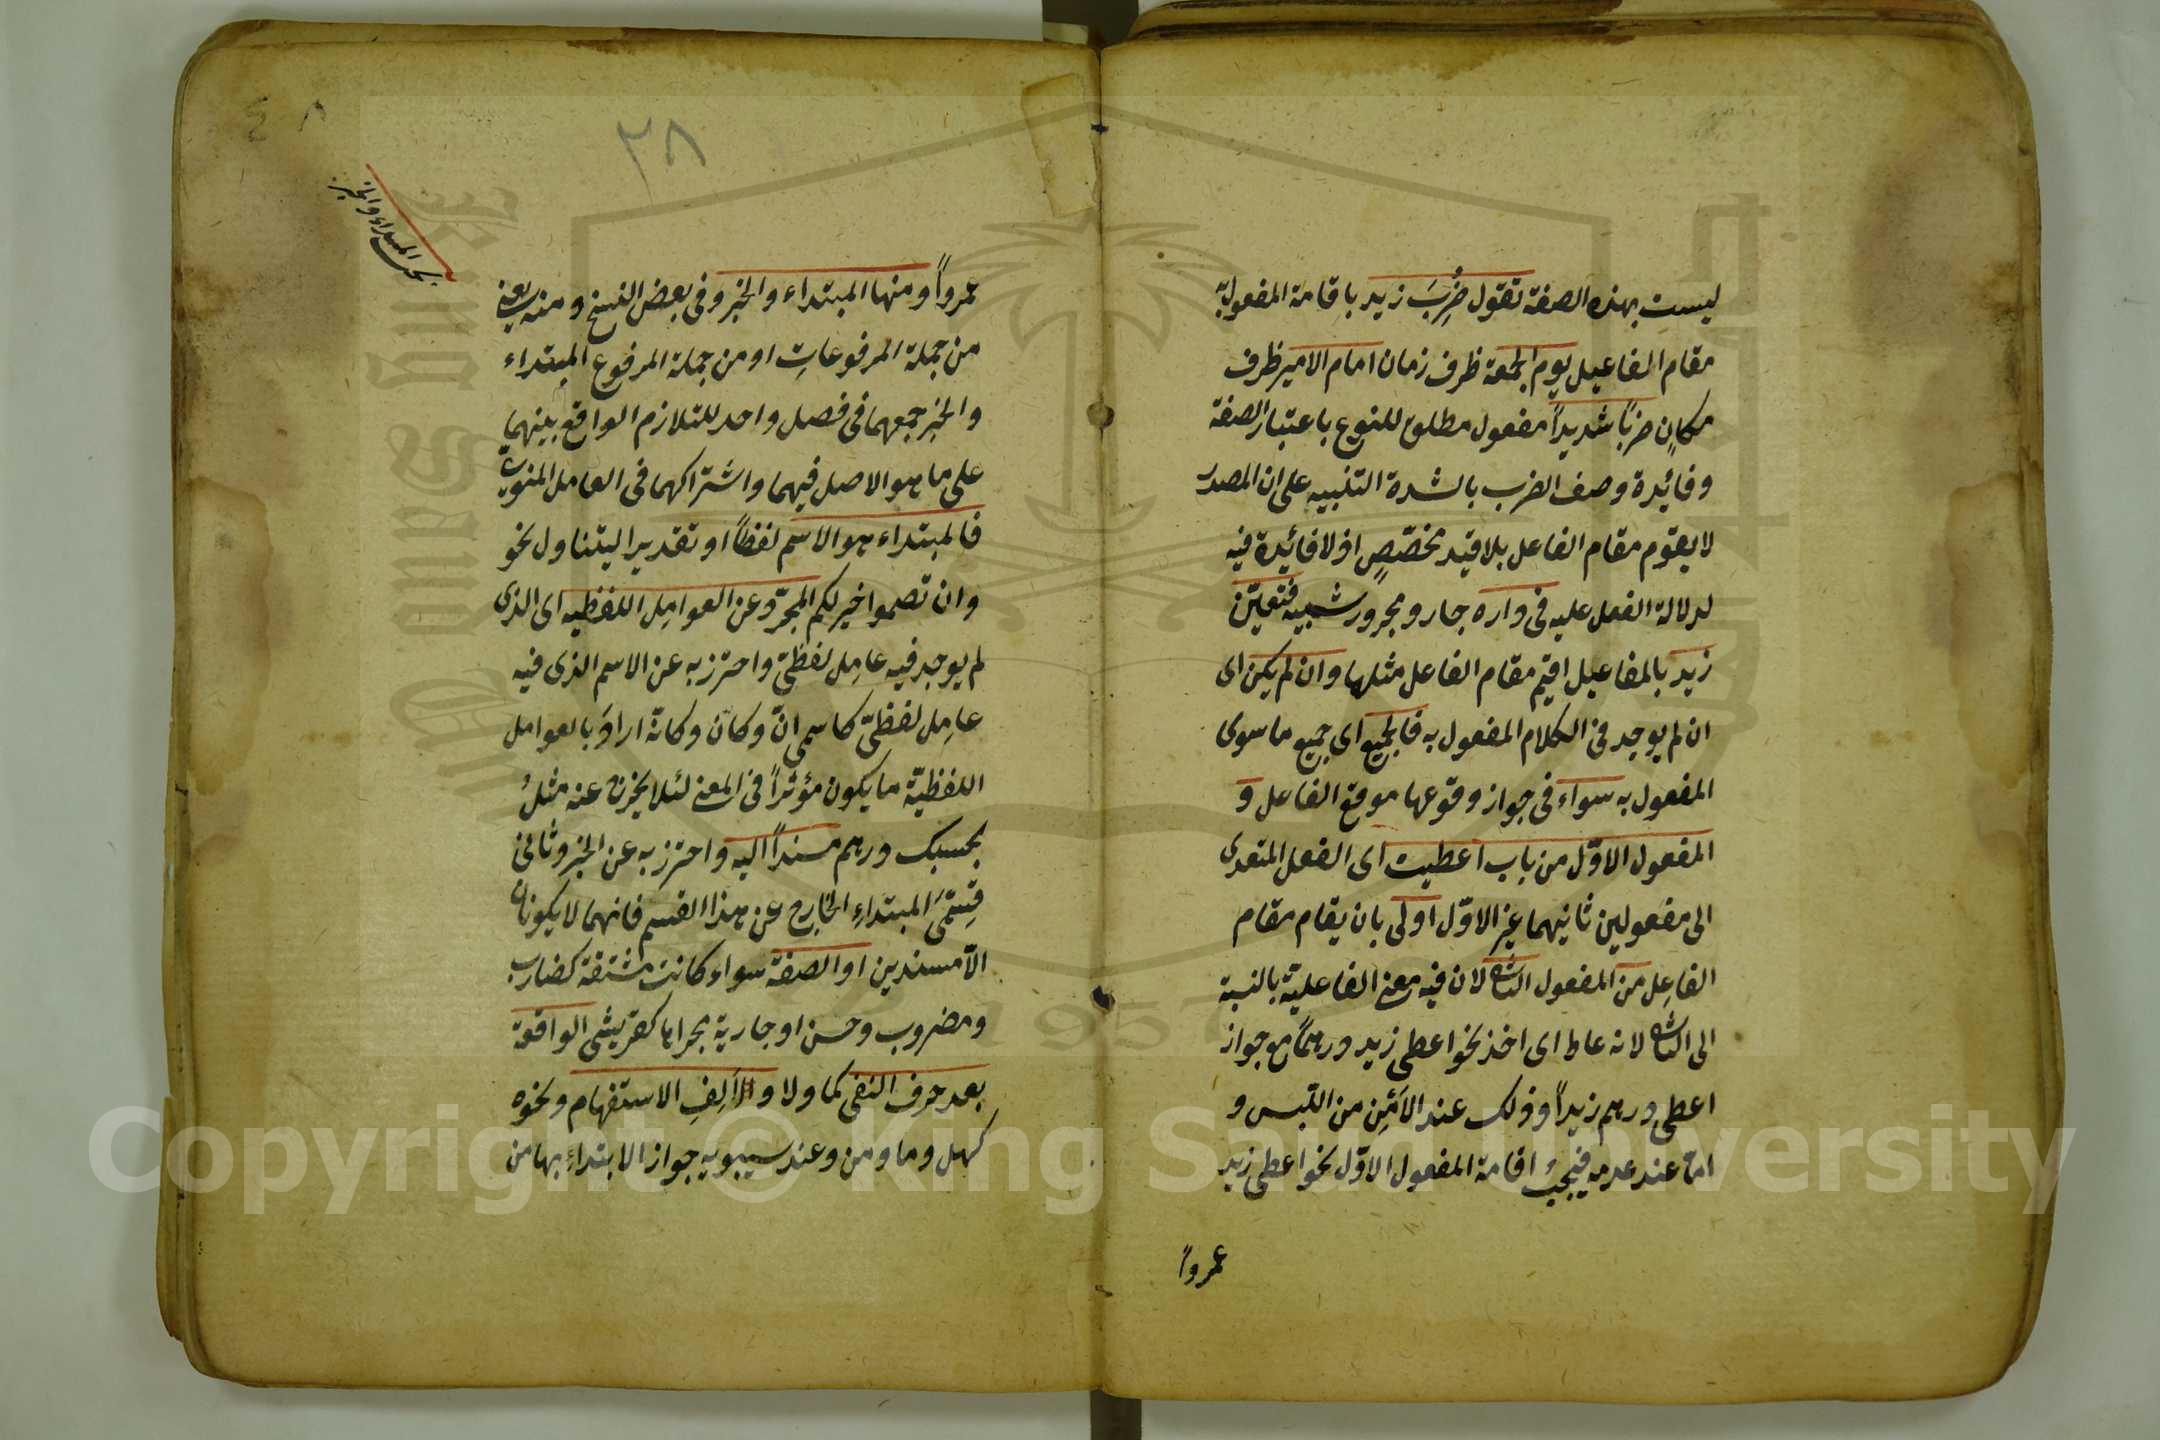 ليست بهذه الصفة تقول ضُرِبَ زيد باقامة المفعول به
مقام المفاعيل يوم الجمعة ظرف زمان امام الامير ظرف
مكانٍ ضربًا شديداً مفعول مطلوع للنوع باعتبار الصفة
وفائدة وصف الضرب بالشدة التنبيه على ان المصدر
لا يقوم مقام الفاعل بلا قيد مخصّصٍ اذ لا فائدة فيه
لدلالة الفعل عليه فى داره جار ومجرور شبيه فتعيّن
زيد بالمفاعيل اقيم مقام الفاعل مثلها وان لم يكن اى
ان لم يوجد فى الكلام المفعول به فالجميع اى جميع ما سوى
المفعول به سواء فى جواز وقوعها موقع الفاعل و
المفعول الاوّل من باب اعطيت اى الفعل المتعدى
الى مفعولين ثانيهما غير الاوّل اولى بان يقام مقام
الفاعِل من المفعول الثانى لان فيه معنى الفاعلية بالنسبة
الى الثانى لانه عاط اى اخذ نحو اعطى زيد درهمًا مع جواز
اعطى درهم زيداً وذلك عند الاَمْنِ من اللبس و
امّا عند عدمه فيجبُ اقامة المفعول الاوّل نحو اعطى زيد
عمرواً
٢٨
بحث المبتداء والخبر
عمرواً ومنها المبتداء والخبر وفى بعض النسخ ومنه يعنى
من جملة المرفوعاتِ او من جملة المرفوع المبتداء
والخبر جمعهما فى فصل واحد للتلازم الواقع بينهما
على ما هو الاصل فيهما واشتراكهما فى العامل المعنوى
فالمبتداء هو الاسم لفظاً او تقديرا ليتناول نحو
وان تصوموا خير لكم المجرّد عن العوامِل اللفظيه اى الذى
لم يوجد فيه عامِل لفظىّ واحترز به عن الاسم الذى فيه
عامِل لفظىّ كاسمى انّ وكان وكانّه ارادَ بالعوامل
اللفظيّة ما يكون مؤثراً فى المعنى لئلا يخرج عنه مثلُ
بحسبك درهم مسنداً اليه واحترز به عن الخبر وثانى
قِسْمَىِ المبتداءِ الخارج عن هذا القسم فانهما لا يكونان
الّا مسندين او الصفة سواء كانت مشتقة كضارب
ومضروب وحسن او جارية مجراها كقريشى الواقعة
بعد حرف النفى كما ولا والاَلِفِ الاستفهام ونحوه
كهل وما ومن وعند سيبويه جواز الابتداءِ بها من
Copyright © King Saud University
1957